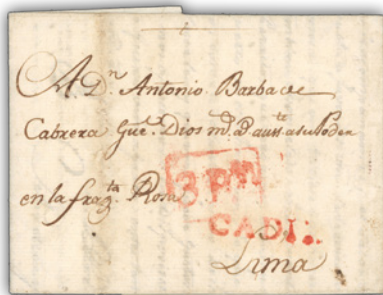 A Dn. Antonio Barba de
Cabrera Gue. Dios ms. as.
en la fragta. Rosa
3 Pm
CADIZ.
Lima